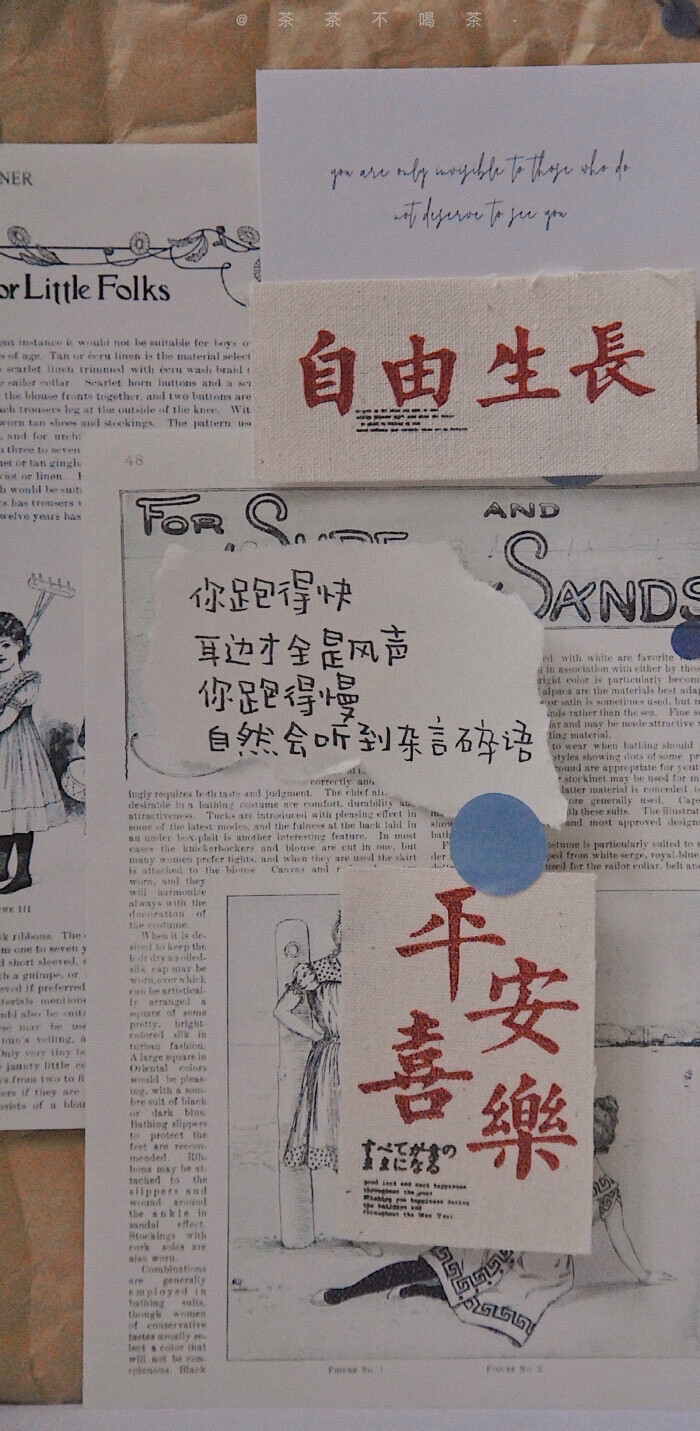 @茶茶不喝茶-
NER
you are only invisible to those who do
not deserve to see you
or Little Folks
自由生長
ent instance it would not be suitable for boys o
s of age. Tan or écru linen is the material select
scarlet linen trimmed with écru wash braid
sailor collar. Scarlet horn buttons and a
the blouse fronts together, and two buttons are
ach trousers leg at the outside of the knee. Wit
worn tan shoes and stockings. The pattern
, and for
n three to seven
net or tan
viot or linen.
h would be
s has trousers
welve years has
48
FOR AND
SANDS
你跑得快
耳边才全是风声
你跑得慢
自然会听到杂言碎语
ed with white are favorite
in association with either by
right color is particularly becom
alpaca are the materials best
or satin is sometimes used, but
nds rather than the sea. Fine
ar and may be made attractive
ting material.
to wear when bathing should
styles showing dots of some
ound are appropriate for
stockinet may be used for
latter material is conceded
ore generally used. Cap
with these suits. The
and most approved
correctly and
ingly requires both taste and judgment. The chief
desirable in a bathing costume are comfort, durability
attractiveness. Tucks are introduced with pleasing effect in
some of the latest modes, and the fulness at the back laid in
an under box-plait is another interesting feature. In most
cases the knickerbockers and blouse are cut in one, but
many women prefer tights, and when they are used the skirt
is attached to the blouse Canvas and
ostume is particularly suited to
ped from white serge, royal-blue
used for the sailor collar, belt
worn, and they
will harmonize
always with the
decoration of
the costume.
When it is de-
sired to keep the
hair dry an oiled-
silk cap may be
worn, over which
can be artistical-
ly arranged a
square of some
pretty, bright-
colored silk in
turban fashion.
A large square in
Oriental colors
would be pleas-
ing, with a som-
bre suit of black
or dark blue.
Bathing slippers
to protect the
feet are recom-
mended. Rib-
bons may be at-
tached to the
slippers and
wound around
the ankle in
sandal effect.
Stockings with
cork soles are
also worn.
Combinations
are generally
employed in
bathing suits,
though women
of conservative
tastes usually se-
lect a color that
will not be con-
spicuous. Black
平安
喜樂
すべてが意の
ままになる
good luck and much happiness
throughout the year
Wishing you happiness during
the holidays and
throughout the New Year
URE III
k ribbons. The
om one to seven
d short sleeved,
h a guimpe, or
eved if preferred
terials mentione
uld also be
se may be
nun's veiling,
Only very tiny
jaunty little
s from two to
ers if they are
nsists of a blou
FIGURE NO. 1
FIGURE NO. 2